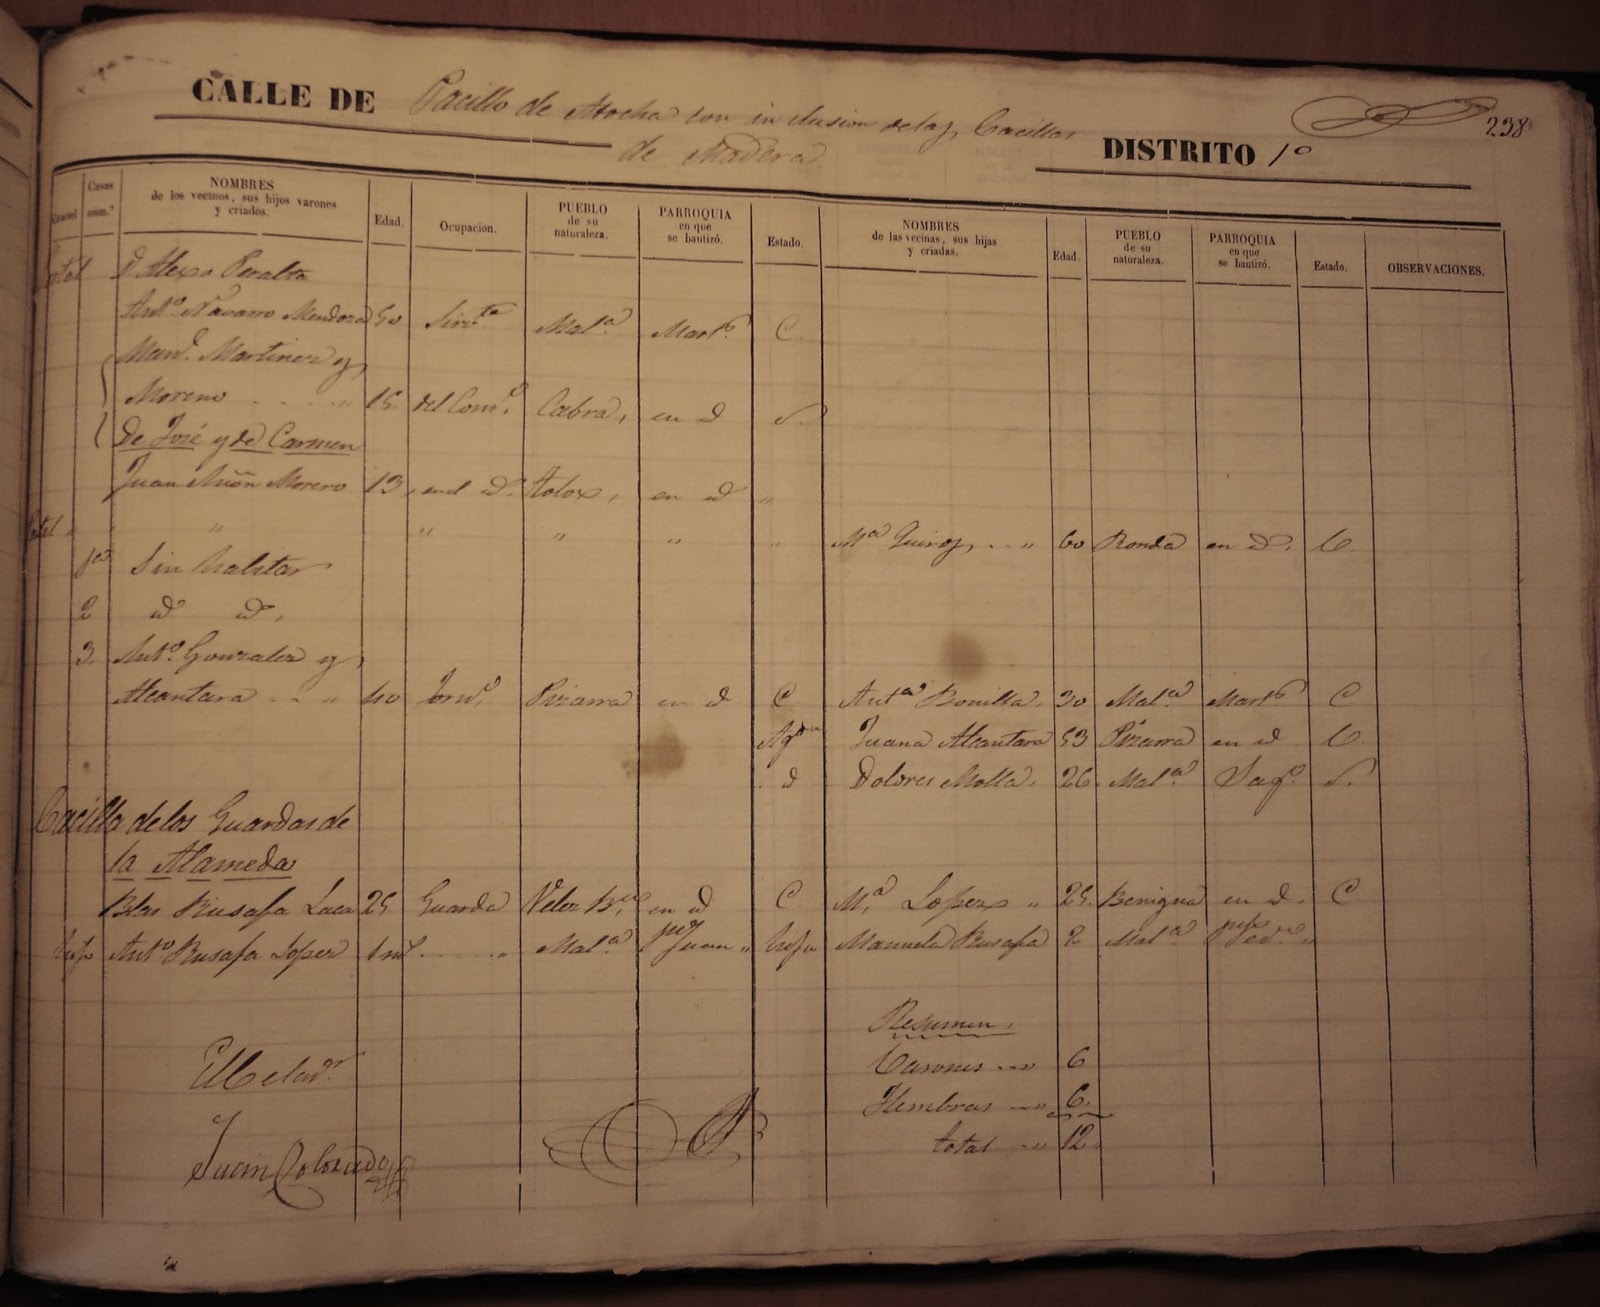 CALLE DE Pacillo de Atocha con inclusion de las Cacillas
de Madera
DISTRITO 1º
238
Casas num.s
NOMBRES de los vecinos, sus hijos varones y criados.
Edad.
Ocupacion.
PUEBLO de su naturaleza.
PARROQUIA en que se bautizó.
Estado.
NOMBRES de las vecinas, sus hijas y criadas.
Edad.
PUEBLO de su naturaleza.
PARROQUIA en que se bautizó.
Estado.
OBSERVACIONES.
D. Alexo Peralta
Antº Navarro Mendoza 50 Sirvte Mala Marts C.
Manl Martinez y
Moreno 15. del Como Cabra, en id S.
De José y de Carmen
Juan Moreno 13, en el id. Tolox, en id "
" " " " " Ma Quiros " 60 Ronda en id. V.
1a Sin habitar
2 id id.
3. Anto Gonzalez y
Alcantara " 40 Jorno Pizarra en id C. Anta Bonilla. 30 Mala Marts C
Agda Juana Alcantara 53 Pizarra en id V.
id Dolores Molla. 26. Mala Sago. S.
Cacilla de los Guardas de
la Alameda
Blas Rusafa 25. Guarda Velez en id C. Ma Lopez " 25. Benigna en id. C
hijo Anto Rusafa Lopez 1 " Mala Juan " hija Manuela Rusafa 2 Mala "
Resumen.
Varones 6
Hembras 6.
total 12.
El Celador
Juan Colorado